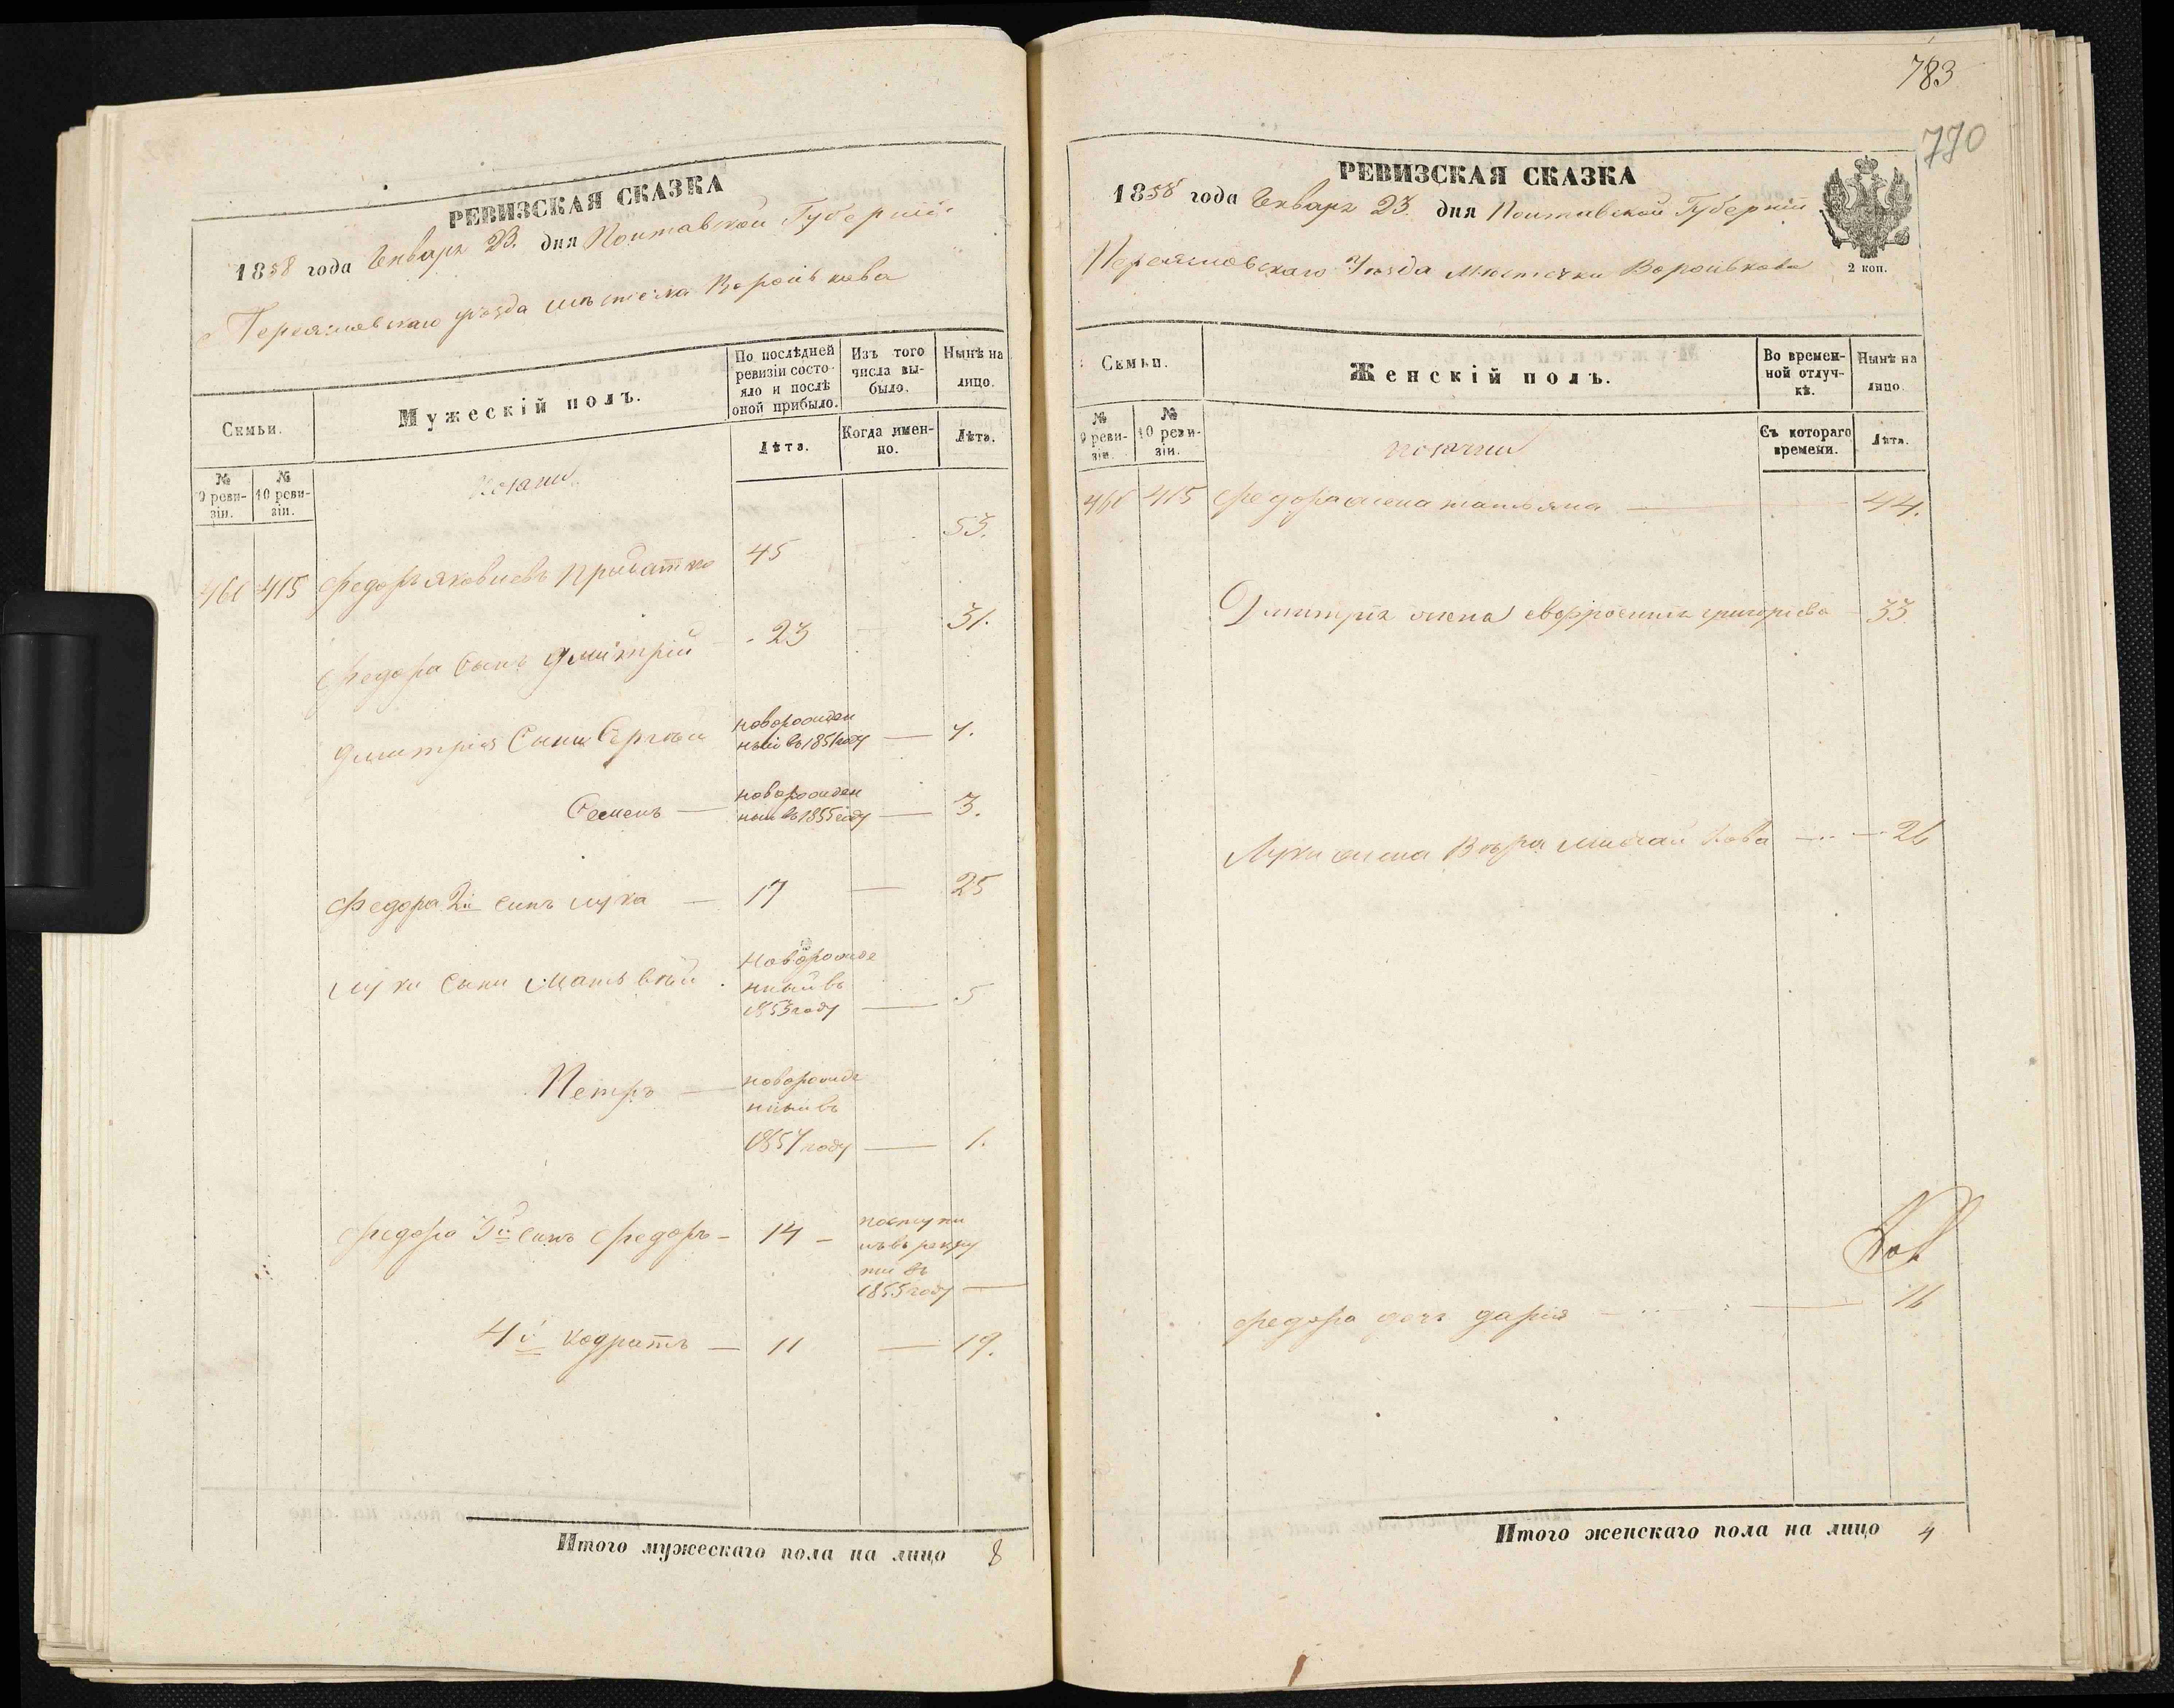 РЕВИЗСКАЯ СКАЗКА
1858 года Генваря 23. дня Полтавской Губерніи
Переяславскаго уѣзда мѣстечка Воронькова
Семьи.
Мужескій полъ.
По послѣдней ревизіи состояло и послѣ оной прибыло.
Изъ того числа выбыло.
Нынѣ на лицо.
№ 9 ревизіи.
№ 10 ревизіи.
Лѣта.
Когда именно.
Лѣта.
415 Федоръ Яковлевъ 45 53.
Федора Сынъ Дмитрій 23 31.
Дмитрія Сыны Сергѣй
новорожден
ный въ 1851 году — 7.
Семенъ —
новорожден
ный въ 1855 году — 3.
Федора 2й сынъ Лука — 17 — 25
Луки Сыны Матвѣй
новорожде
нный въ
1853 году — 5
Петръ —
новорожде
нный въ
1857 году — 1.
Федора 3й сынъ Федоръ — 14 —
поступи
лъ въ рекру
ты въ
1855 году —
4й Кодратъ — 11 — 19.
Итого мужескаго пола на лицо 8
783
770
РЕВИЗСКАЯ СКАЗКА
1858 года Генваря 23. дня Полтавской Губерніи
Переяславскаго Уѣзда Мѣстечка Воронькова
2 коп.
Семьи.
Женскій полъ.
Во временной отлучкѣ.
Нынѣ на лицо.
№ 9 ревизіи.
№ 10 ревизіи.
Съ котораго времени.
Лѣта.
415 Федора жена Татьяна — 44.
Дмитрія жена Евфросинія Григорьева — 33
Луки жена Вѣра Михайлова — 26
Федора дочь Дарія — 16
Итого женскаго пола на лицо 4